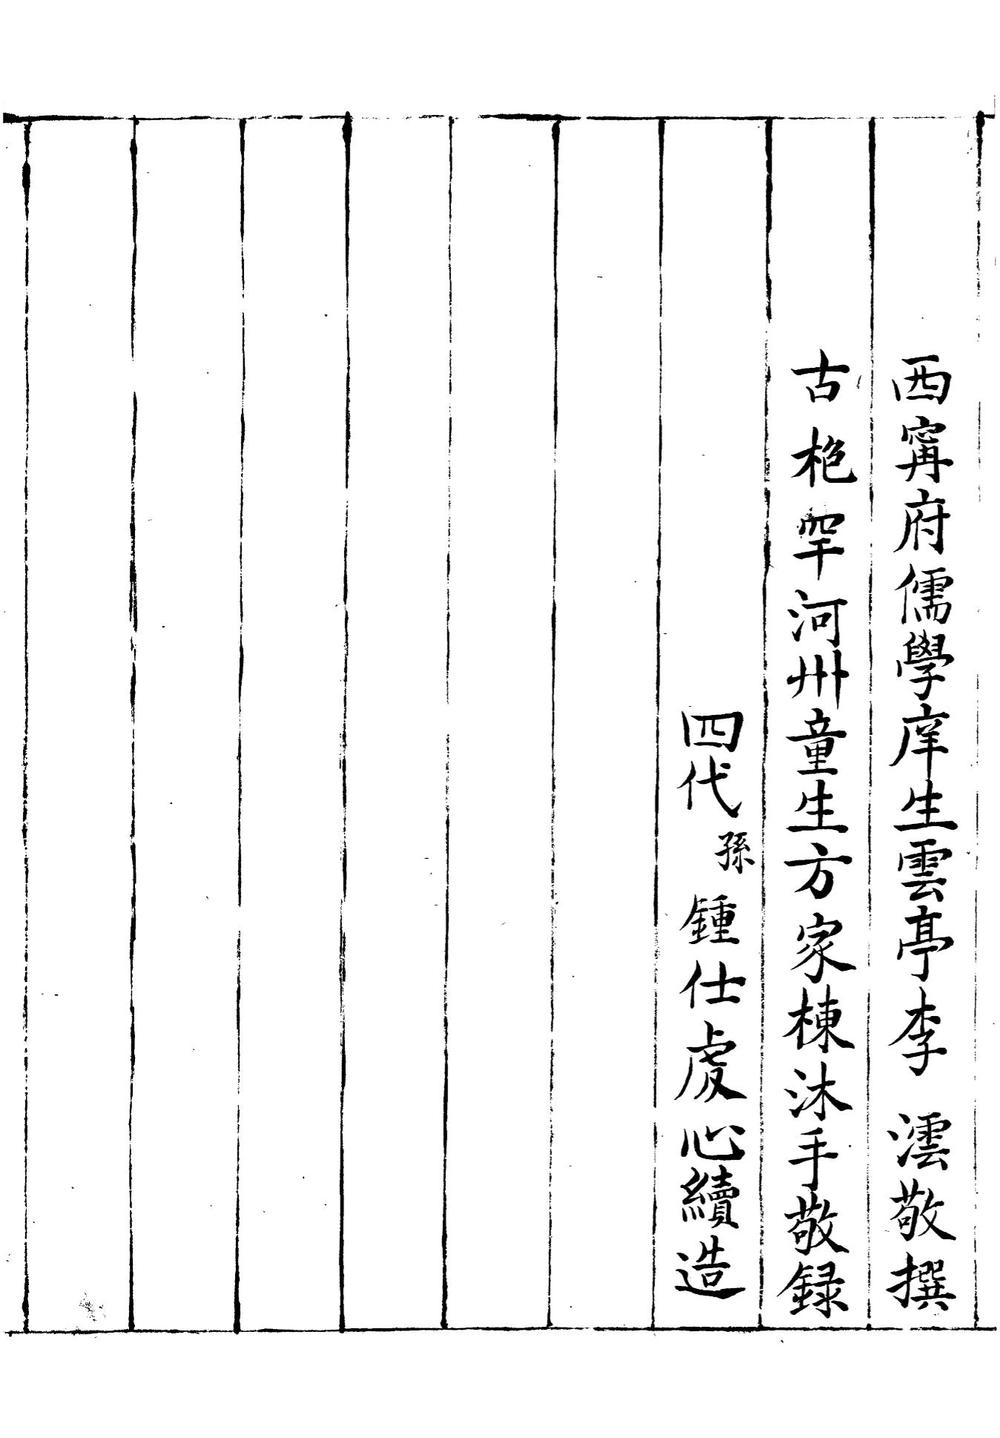 西寗府儒學庠生雲亭李澐敬撰
古枹罕河州童生方家棟沐手敬録
四代孫鍾仕虔心續造